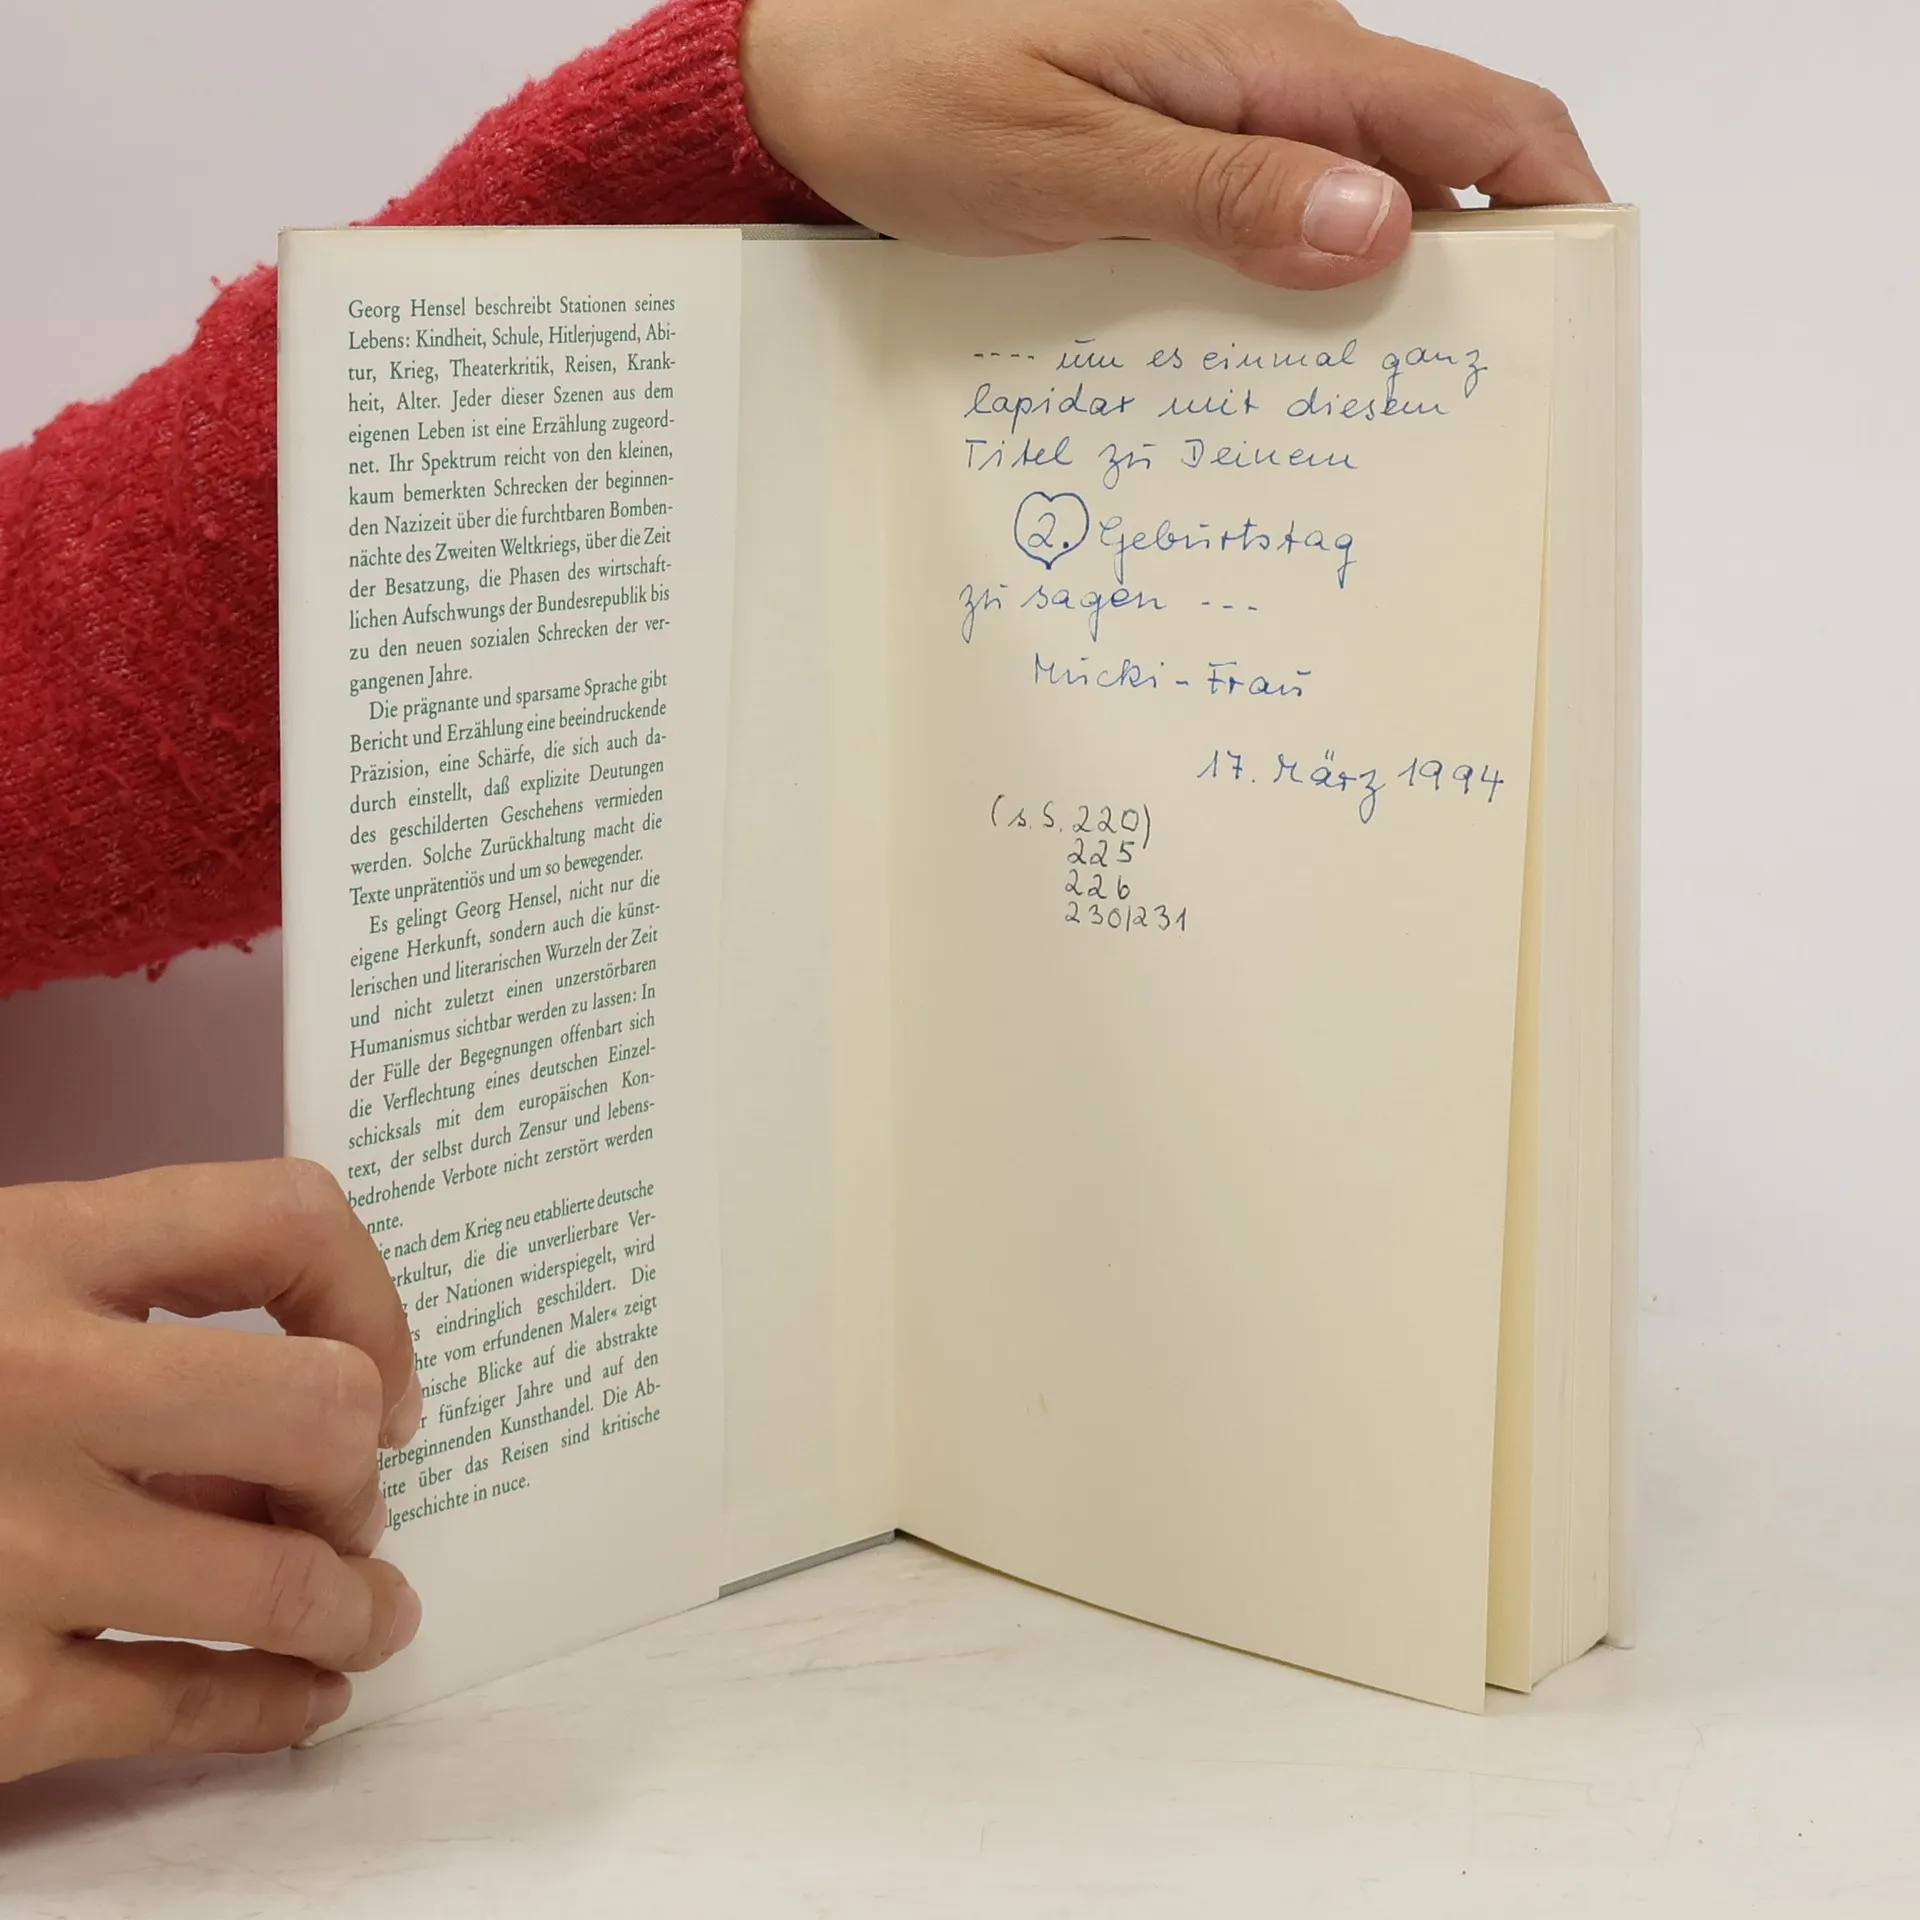 Georg Hensel beschreibt Stationen seines
Lebens: Kindheit, Schule, Hitlerjugend, Abi-
tur, Krieg, Theaterkritik, Reisen, Krank-
heit, Alter. Jeder dieser Szenen aus dem
eigenen Leben ist eine Erzählung zugeord-
net. Ihr Spektrum reicht von den kleinen,
kaum bemerkten Schrecken der beginnen-
den Nazizeit über die furchtbaren Bomben-
nächte des Zweiten Weltkriegs, über die Zeit
der Besatzung, die Phasen des wirtschaft-
lichen Aufschwungs der Bundesrepublik bis
zu den neuen sozialen Schrecken der ver-
gangenen Jahre.
Die prägnante und sparsame Sprache gibt
Bericht und Erzählung eine beeindruckende
Präzision, eine Schärfe, die sich auch da-
durch einstellt, daß explizite Deutungen
des geschilderten Geschehens vermieden
werden. Solche Zurückhaltung macht die
Texte unprätentiös und um so bewegender.
Es gelingt Georg Hensel, nicht nur die
eigene Herkunft, sondern auch die künst-
lerischen und literarischen Wurzeln der Zeit
und nicht zuletzt einen unzerstörbaren
Humanismus sichtbar werden zu lassen: In
der Fülle der Begegnungen offenbart sich
die Verflechtung eines deutschen Einzel-
schicksals mit dem europäischen Kon-
text, der selbst durch Zensur und lebens-
bedrohende Verbote nicht zerstört werden
nnte.
ie nach dem Krieg neu etablierte deutsche
erkultur, die die unverlierbare Ver-
g der Nationen widerspiegelt, wird
rs eindringlich geschildert. Die
hte vom erfundenen Maler« zeigt
nische Blicke auf die abstrakte
r fünfziger Jahre und auf den
derbeginnenden Kunsthandel. Die Ab-
itte über das Reisen sind kritische
lgeschichte in nuce.
---- um es einmal ganz
lapidar mit diesem
Titel zu Deinem
2. Geburtstag
zu sagen ---
Mucki-Frau
17. März 1994
(s. S. 220)
225
226
230/231